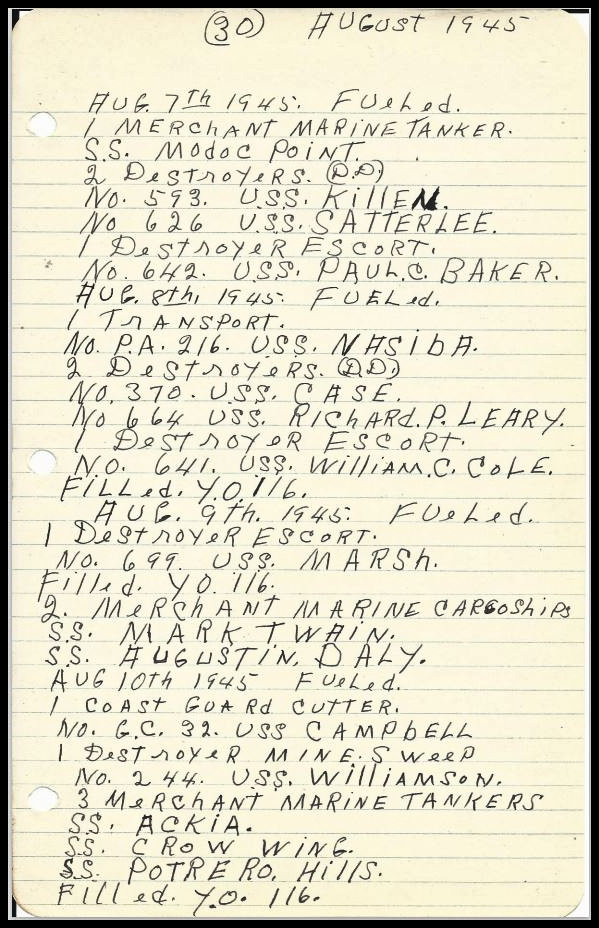 (30) AUGUST 1945
AUG. 7TH 1945. FUELED.
1 MERCHANT MARINE TANKER.
S.S. MODOC POINT.
2 DESTROYERS. (D.D.)
NO. 593. U.S.S. KILLEN.
NO 626 U.S.S. SATTERLEE.
1 DESTROYER ESCORT.
NO. 642. U.S.S. PAUL.C. BAKER.
AUG. 8th, 1945. FUELED.
1 TRANSPORT.
NO. P.A. 216. U.S.S. NASIBA.
2 DESTROYERS. (D.D.)
NO. 370. U.S.S. CASE.
NO 664 USS. RICHARD. P. LEARY.
1 DESTROYER ESCORT.
NO. 641. USS. WILLIAM.C. COLE.
FILLED. Y.O. 116.
AUG. 9th. 1945. FUELED.
1 DESTROYER ESCORT.
NO. 699. USS. MARSH.
FILLED. YO. 116.
2. MERCHANT MARINE CARGOSHIPS
S.S. MARK TWAIN.
S.S. AUGUSTIN. DALY.
AUG 10th 1945 FUELED.
1 COAST GUARD CUTTER.
NO. G.C. 32. USS CAMPBELL
1 DESTROYER MINE. SWEEP
NO. 244. U.S.S. WILLIAMSON.
3 MERCHANT MARINE TANKERS
SS. ACKIA.
SS. CROW WING.
S.S. POTRERO. HILLS.
FILLED. Y.O. 116.